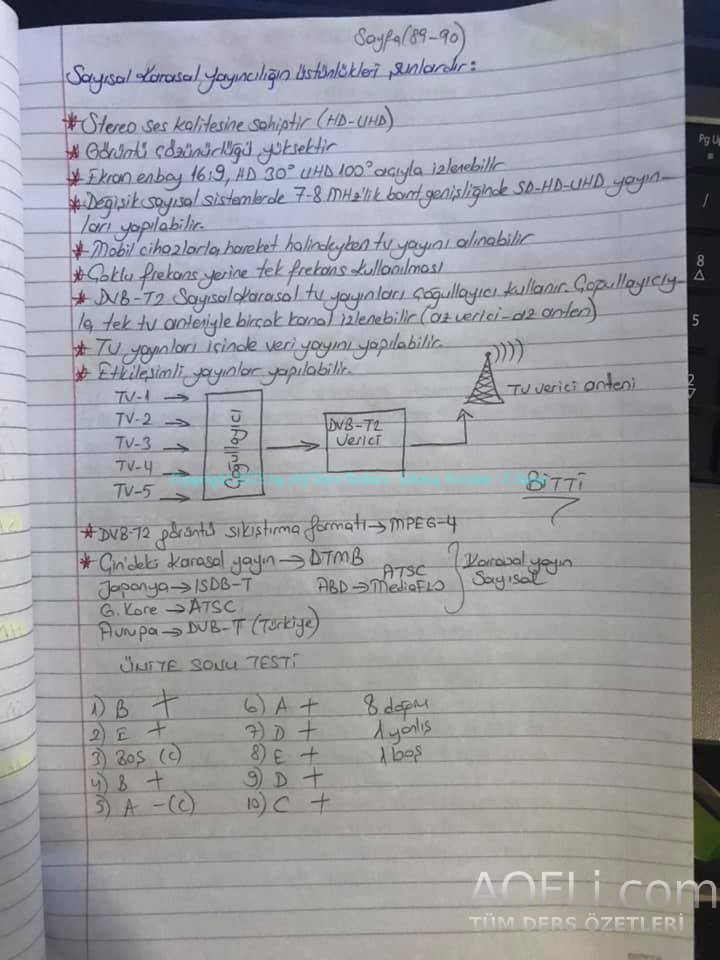 Sayfa(89-90)
Sayısal Karasal yayıncılığın üstünlükleri şunlardır:
* Stereo ses kalitesine sahiptir (HD-UHD)
* Görüntü çözünürlüğü yüksektir
* Ekran enboy 16:9, HD 30° UHD 100° açıyla izlenebilir
* Değişik sayısal sistemlerde 7-8 MHz'lik bant genişliğinde SD-HD-UHD yayın-
ları yapılabilir.
* Mobil cihazlarla, hareket halindeyken tv yayını alınabilir
* Çoklu frekans yerine tek frekans kullanılması
* DVB-T2 Sayısal karasal tv yayınları çoğullayıcı kullanır. Çoğullayıcıy-
la tek tv anteniyle birçok kanal izlenebilir (az verici-az anten)
* TV yayınları içinde veri yayını yapılabilir.
* Etkileşimli yayınlar yapılabilir.
TV-1
TV-2
TV-3
TV-4
TV-5
Çoğullayıcı
DVB-T2
Verici
TV verici anteni
BİTTİ
* DVB-T2 görüntü sıkıştırma formatı → MPEG-4
* Çin'deki Karasal yayın → DTMB
Japonya → ISDB-T
ATSC
ABD → MediaFLO
G. Kore → ATSC
Avrupa → DVB-T (Türkiye)
Karasal yayın
Sayısal
ÜNİTE SONU TESTİ
1) B +
2) E +
3) Boş (C)
4) B +
5) A -(C)
6) A +
7) D +
8) E +
9) D +
10) C +
8 doğru
1 yanlış
1 boş
AOFLi.com
TÜM DERS ÖZETLERİ
8
5
2